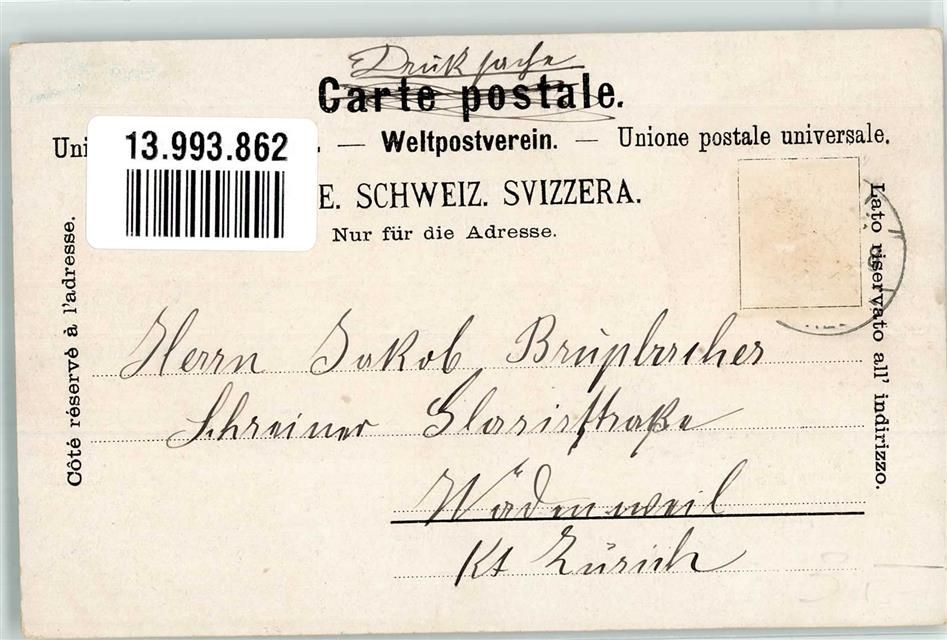 Drucksache
Carte postale.
Uni — Weltpostverein. — Unione postale universale.
13.993.862
E. SCHWEIZ. SVIZZERA.
Nur für die Adresse.
Côté réservé à l'adresse.
Lato riservato all' indirizzo.
Herrn Jakob
Schreiner Glarisstraße
Wädensweil
Kt Zürich